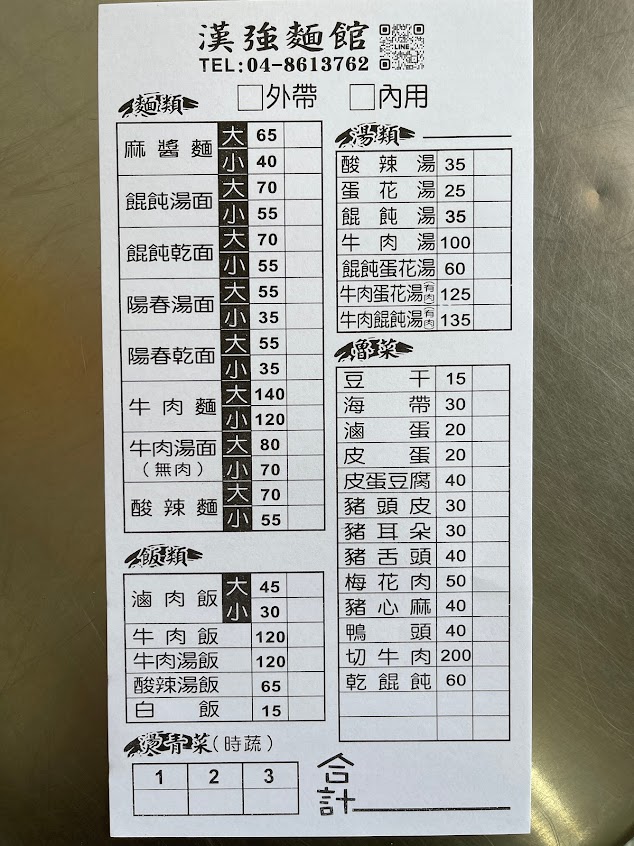 漢強麵館
LINE
TEL:04-8613762
□外帶 □內用
麵類
麻醬麵 大 65
小 40
餛飩湯面 大 70
小 55
餛飩乾面 大 70
小 55
陽春湯面 大 55
小 35
陽春乾面 大 55
小 35
牛肉麵 大 140
小 120
牛肉湯面(無肉) 大 80
小 70
酸辣麵 大 70
小 55
飯類
滷肉飯 大 45
小 30
牛肉飯 120
牛肉湯飯 120
酸辣湯飯 65
白飯 15
燙青菜(時蔬)
1 2 3
湯類
酸辣湯 35
蛋花湯 25
餛飩湯 35
牛肉湯 100
餛飩蛋花湯 60
牛肉蛋花湯(有肉) 125
牛肉餛飩湯(有肉) 135
嚕菜
豆干 15
海帶 30
滷蛋 20
皮蛋 20
皮蛋豆腐 40
豬頭皮 30
豬耳朵 30
豬舌頭 40
梅花肉 50
豬心麻 40
鴨頭 40
切牛肉 200
乾餛飩 60
合計